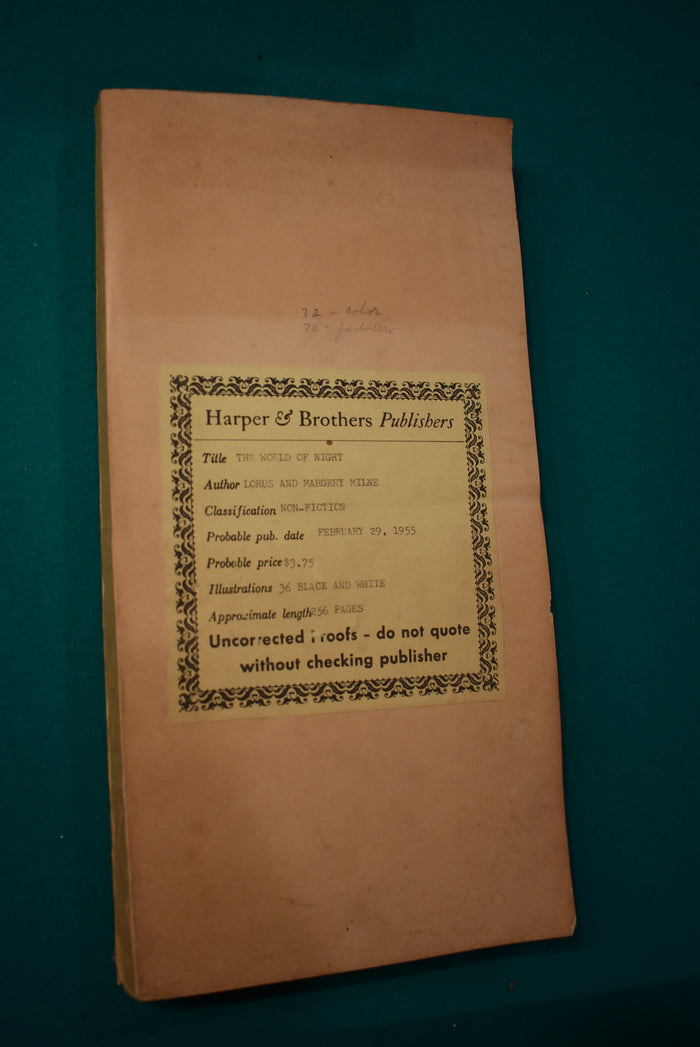 32 - color
70 -
Harper & Brothers Publishers
Title THE WORLD OF NIGHT
Author LORUS AND MARGERY MILNE
Classification NON-FICTION
Probable pub. date FEBRUARY 29, 1955
Probable price $3.75
Illustrations 36 BLACK AND WHITE
Approximate length 256 PAGES
Uncorrected Proofs - do not quote
without checking publisher